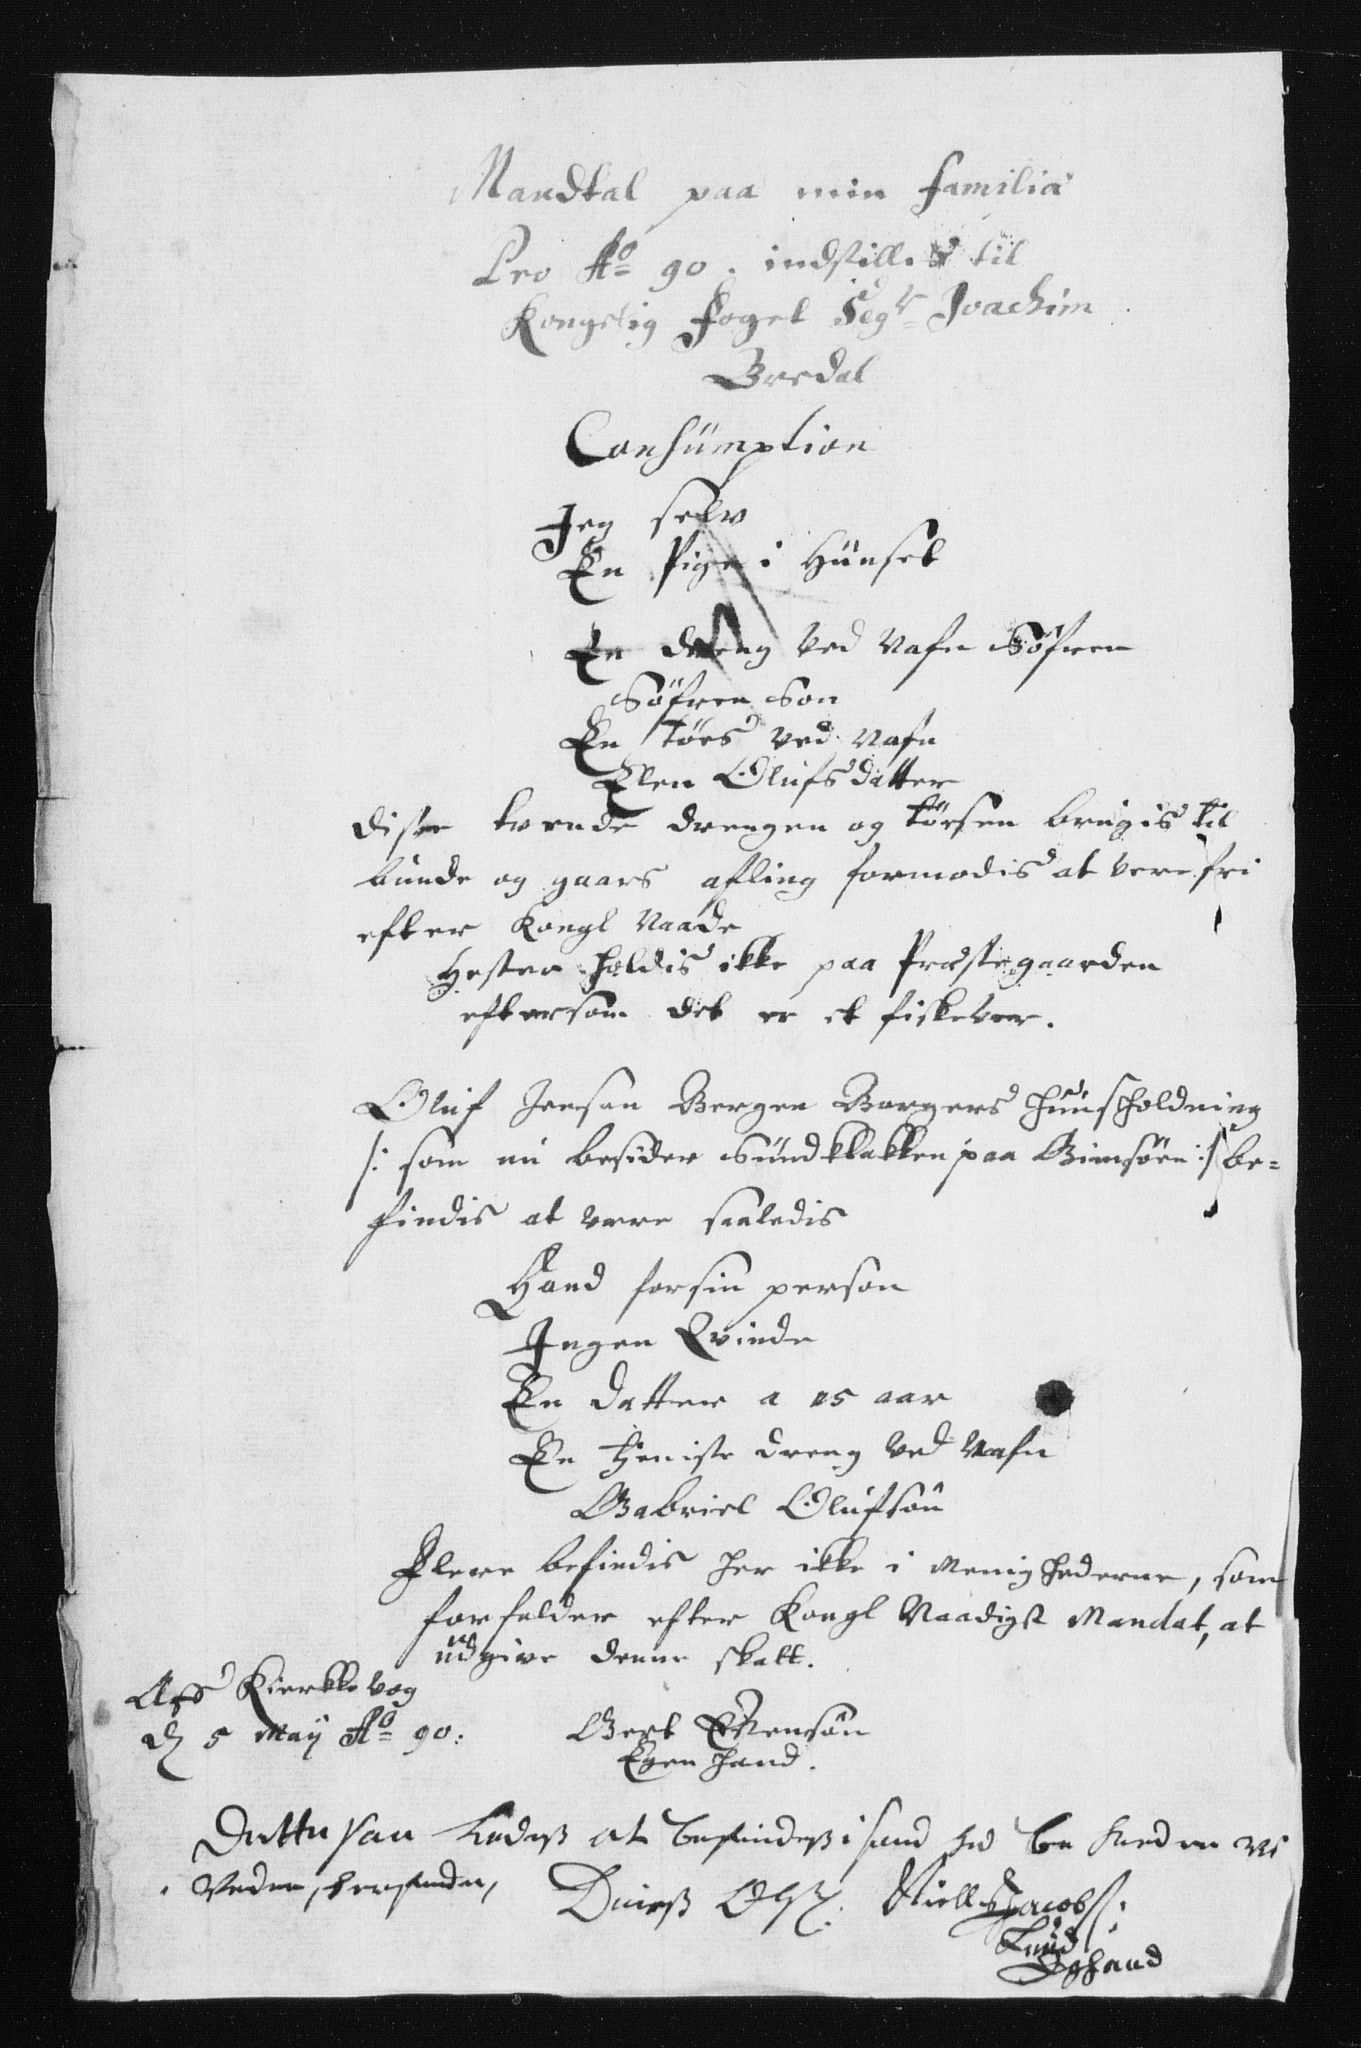 Mandtal paa min familiæ
Pro Ao 90. indstillet til
Kongelig foget Segr Joachim
Bredal
Consumption
Jeg selv
En Pige i Hŭŭset
En dreng ved nafn Söfren
Söfren Son
En Töes ved nafn
Elen Olŭfs datter
disse tvende drengen og törsen brŭgis til
bŭnde og gaars afling formodis at vere fri
efter Kongl Naade
Hester holdis ikke paa Præstegaarden
eftersom det er et fiskever.
Olŭf Jensøn Bergen Borgers hŭŭsholdning
/: som nŭ besider Sŭndklakken paa Gimsöen :/ be-
findis at vere saaledis
Hand for sin person
Ingen Qvinde
En datter a 15 aar
En tieniste dreng ved Nafn
Gabriel Olŭfsön
Flere befindis her ikke i Menighederne, som
forfalder efter Kongl Naadigst Mandat, at
ŭdgive denne skatt.
Aff Kierkkevog
d 5 Maÿ Ao 90:
Gert
Egen hand.
Dette saa ledess at befindess i sand hed be kiender vi
Olss: Niells Jacobss:
Eghand